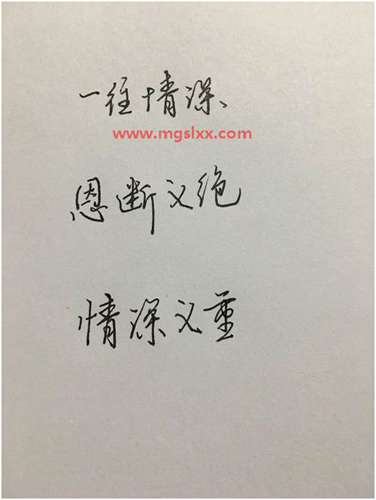 一往情深
www.mgslxx.com
恩断义绝
情深义重